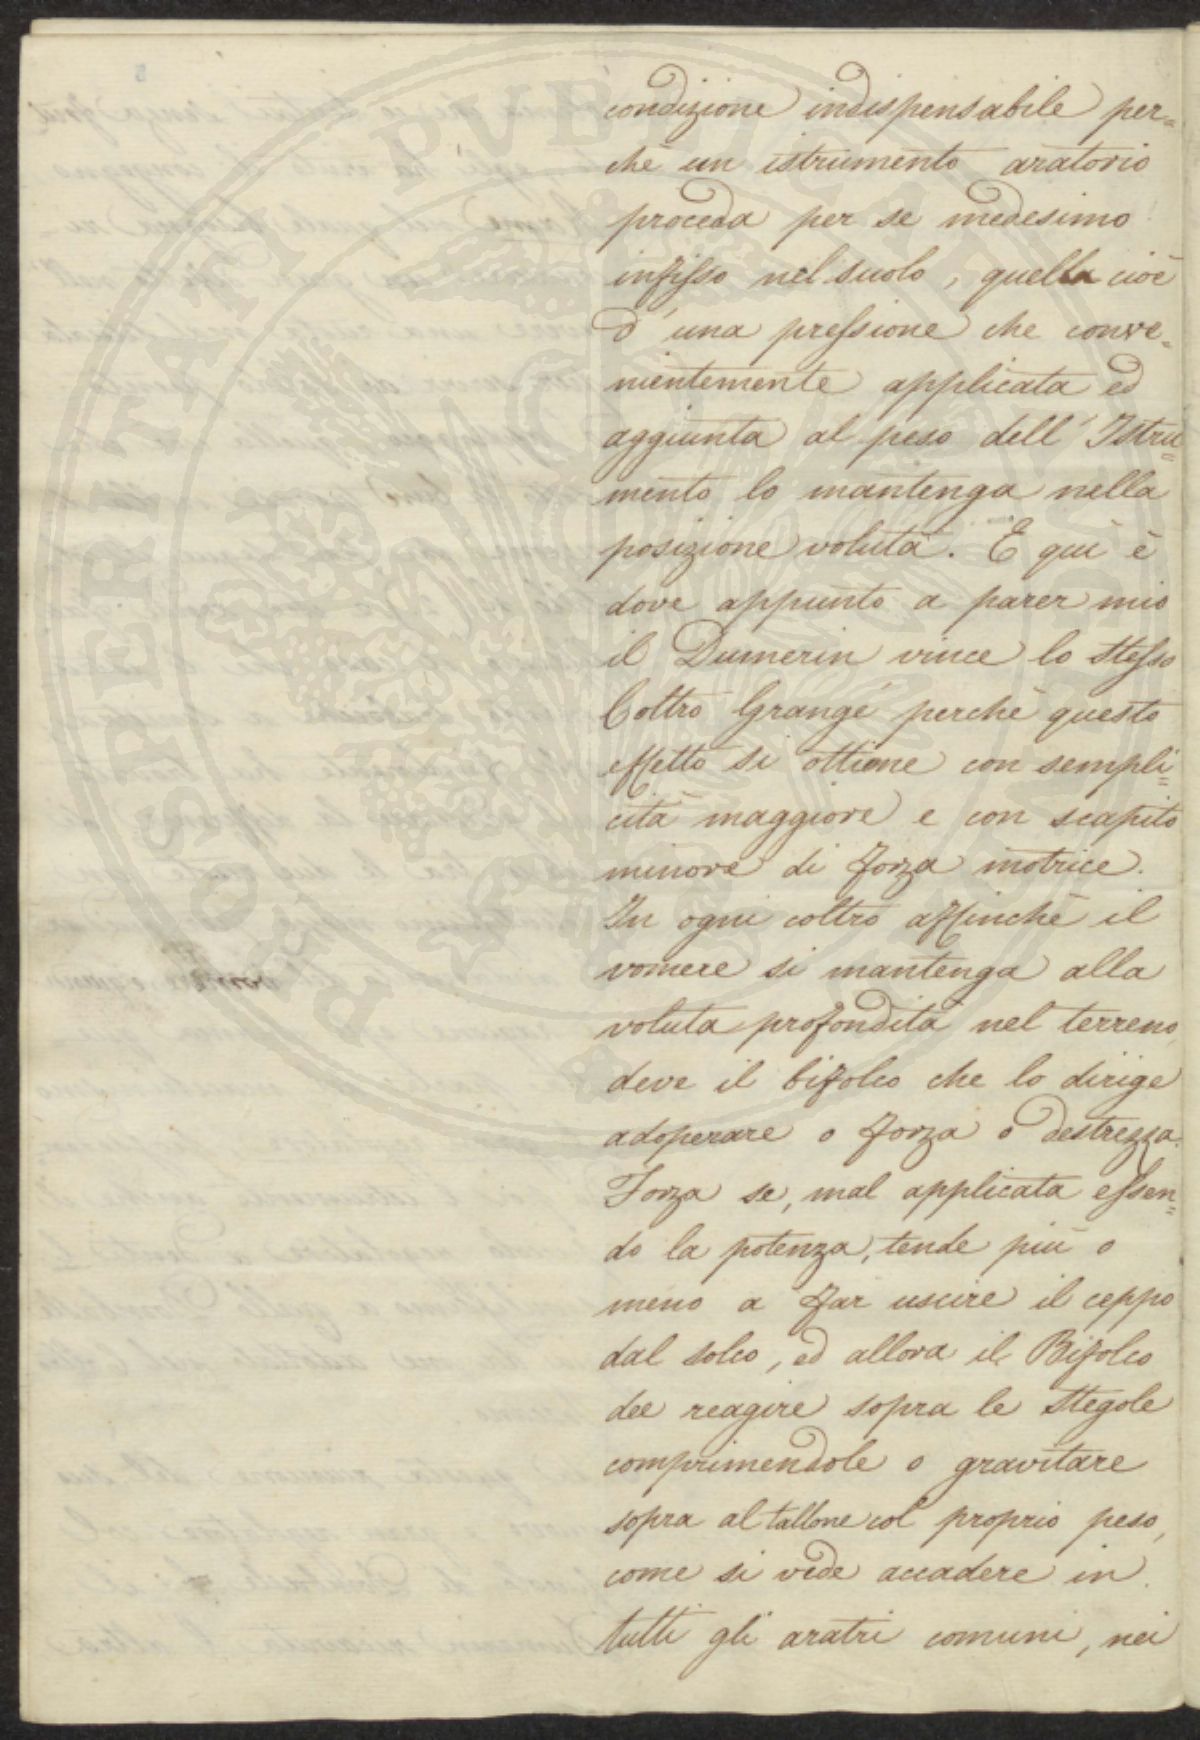 condizione indispensabile per=
chè un istrumento aratorio
proceda per se medesimo
infisso nel suolo, quella cioè
d'una pressione che conve=
nientemente applicata ed
aggiunta al peso dell'Istru=
mento lo mantenga nella
posizione voluta. E qui è
dove appunto a parer mio
il Dumerin vince lo stesso
Coltro Grangé perchè questo
effetto si ottiene con sempli=
cità maggiore e con scapito
minore di forza motrice.
In ogni coltro affinchè il
vomere si mantenga alla
voluta profondità nel terreno,
deve il bifolco che lo dirige
adoperare o forza o destrezza.
Forza se, mal applicata essen=
do la potenza, tende più o
meno a far uscire il ceppo
dal solco, ed allora il Bifolco
dee reagire sopra le stegole
comprimendole o gravitare
sopra al tallone col proprio peso,
come si vede accadere in
tutti gli aratri comuni, nei
PROSPERITATI PVBLICAE